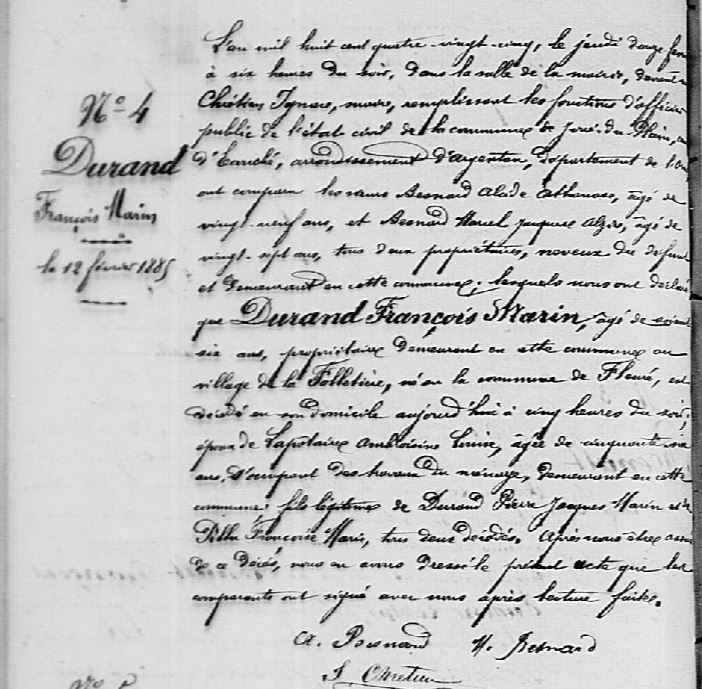 L'an mil huit cent quatre-vingt-cinq, le jeudi douze fev
à six heures du soir, dans la salle de la mairie, devant n
Chrétien Ignace, maire, remplissant les fonctions d'officier
public de l'état civil de la commune de Joué-du-Plain, can
d'Ecouché, arrondissement d'Argentan, département de l'Orn
ont comparu les sieurs Besnard Athanase, âgé de
vingt-neuf ans, et Besnard Marcel Jacques, âgé de
vingt-sept ans, tous deux propriétaires, neveux du défunt
et demeurant en cette commune; lesquels nous ont déclaré
que Durand François Marin, âgé de soixant
six ans, propriétaire demeurant en cette commune au
village de la Folletière, né en la commune de Fleuré, est
décédé en son domicile aujourd'hui à cinq heures du soir;
époux de Lapotaire Ambroisine Louise, âgée de cinquante six
ans, s'occupant des travaux du ménage, demeurant en cette
commune; fils légitime de Durand Pierre Jacques Marin et de
Françoise Marie, tous deux décédés. Après nous être assur
de ce décès, nous en avons dressé le présent acte que les
comparants ont signé avec nous après lecture faite.
A. Besnard M. Besnard
I. Chrétien
N° 4
Durand
François Marin
le 12 février 1885